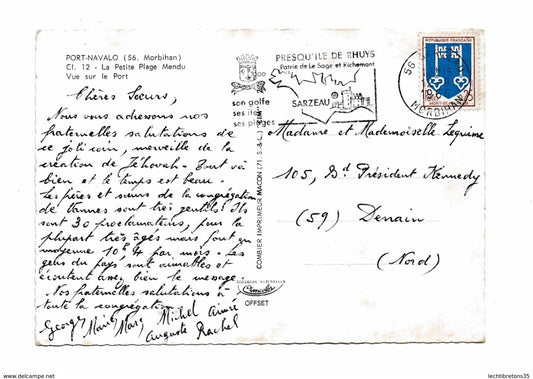 PORT-NAVALO (56. Morbihan)
Cl. 12 - La Petite Plage Mendu
Vue sur le Port
Chères Soeurs,
Nous vous adressons nos
fraternelles salutations de
ce joli coin, merveille de la
création de Jéhovah. Tout va
bien et le temps est beau.
Les frères et soeurs de la congrégation
de Vannes sont très gentils. Ils
sont 30 proclamateurs, pour la
plupart très âgés mais font en
moyenne 10h4 par mois. Les
gens du pays sont aimables et
écoutent assez bien le message.
Nos fraternelles salutations à
toute la congrégation.
Georges Marie Marc Michel Aimée
Auguste Rachel
COMBIER IMPRIMEUR MACON (71. S.-&-L.) "CIM"
OFFSET
son golfe
ses îles
ses plages
PRESQU'ILE DE RHUYS
Patrie de Le Sage et Richemont
SARZEAU
56
MORBIHAN
REPUBLIQUE FRANÇAISE
Madame et Mademoiselle Lequime
105, Bd Président Kennedy
(59) Denain
(Nord)
www.delcampe.net
lechtibretons35